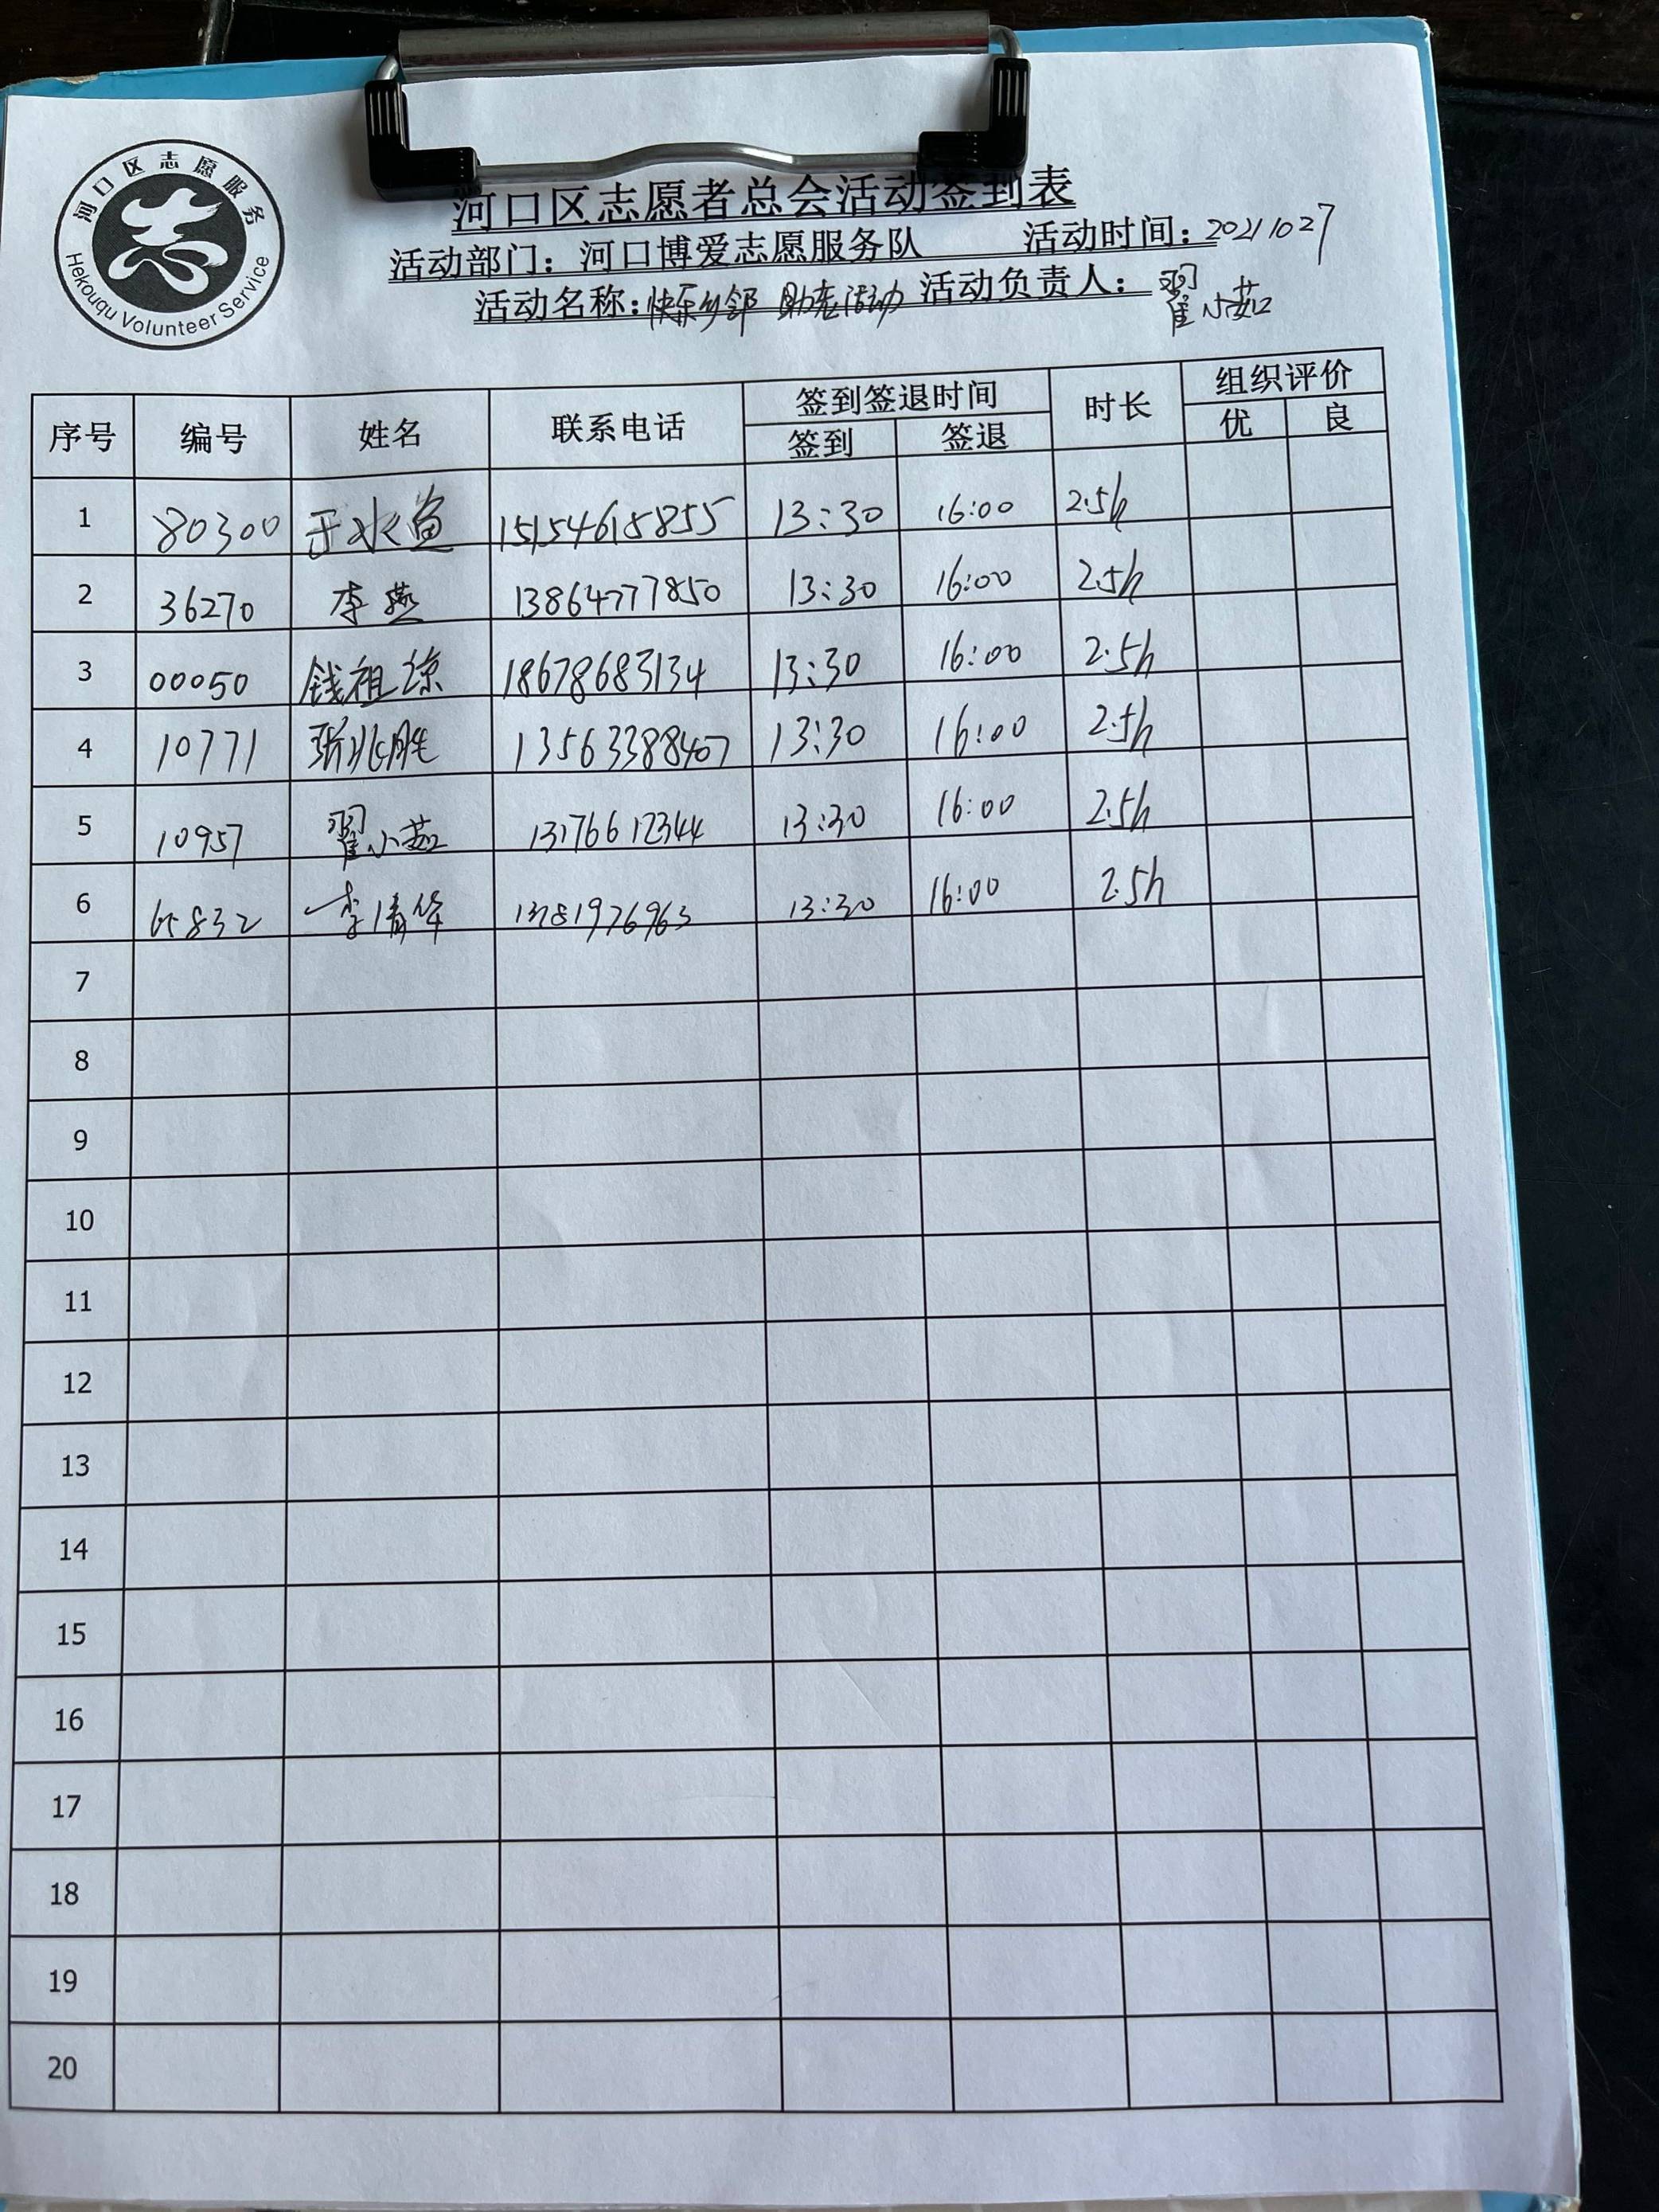 河口区志愿服务
Hekouqu Volunteer Service
河口区志愿者总会活动签到表
活动部门：河口博爱志愿服务队 活动时间：20211027
活动名称：快乐乡邻 助老活动 活动负责人：翟小茹
序号 编号 姓名 联系电话 签到签退时间 时长 组织评价
签到 签退 优 良
1 80300 15154615855 13:30 16:00 2.5h
2 36270 李燕 13864777850 13:30 16:00 2.5h
3 00050 钱祖凉 18678683134 13:30 16:00 2.5h
4 10771 张兆胜 13563388407 13:30 16:00 2.5h
5 10957 翟小茹 13176612344 13:30 16:00 2.5h
6 65832 李清华 13:30 16:00 2.5h
7
8
9
10
11
12
13
14
15
16
17
18
19
20